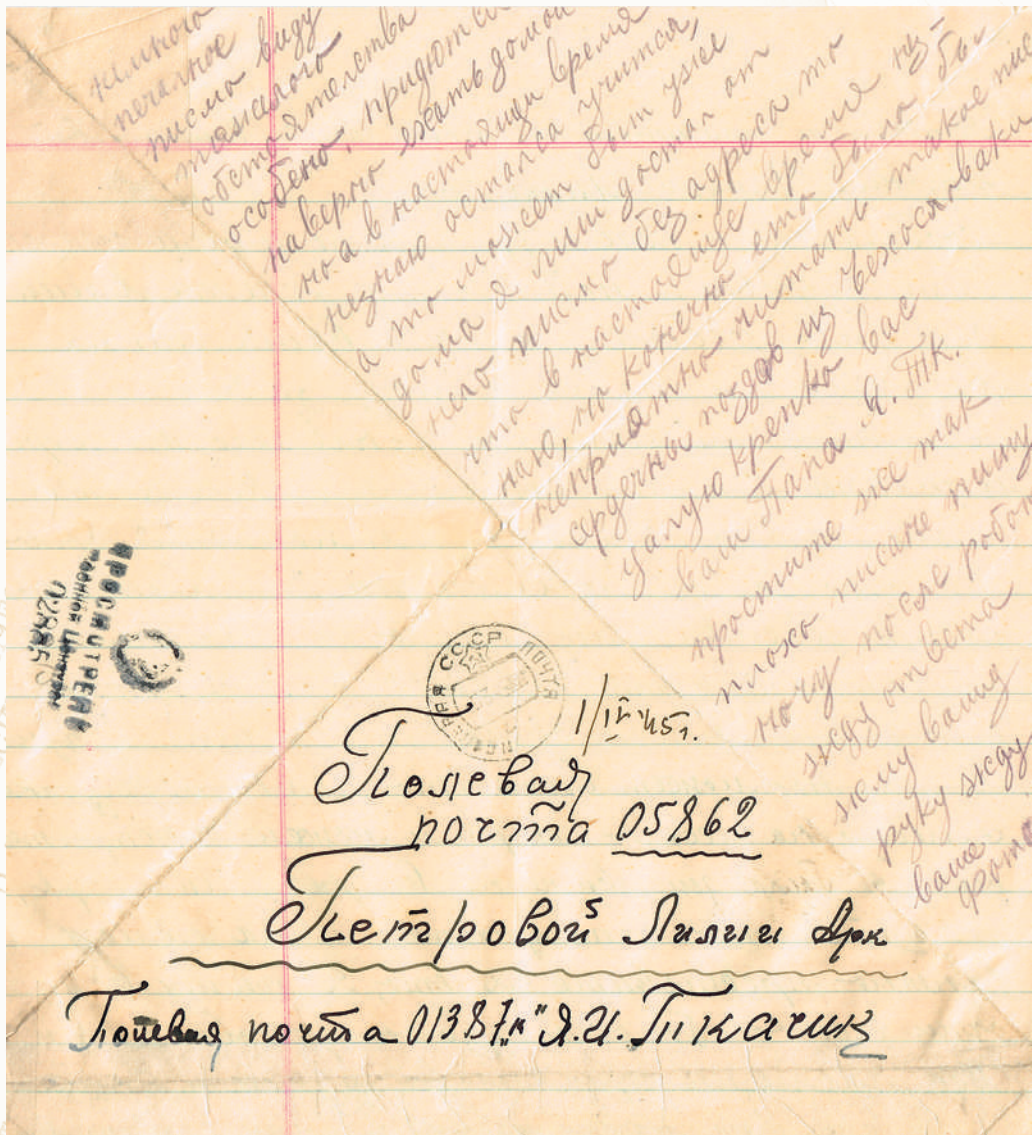 немного
печалное
писмо виду
тяжолого
обстоятелства
особено, придются
наверно ехать домой
но а в настоящи время
незнаю остался учится,
а то может быт уже
дома я лиш достал от
него писмо без адреса то
что в настояще время нз-
наю, но конечно ето было бы
неприятно читать такое пис
сердечны поздов из Чехословаки
Цалую крепко вас
ваш Папа Я. Тк.
простите же так
плохо писане пишу
ночу после работ
жду ответа
жему вашид
руку жду
ваше
фото
ПРОСМОТРЕНО
Военной Цензурой
02885
ПОЛЕВАЯ СССР ПОЧТА
1/IV 45 г.
Полевая
почта 05862
Петровой Лилии Арк
Полевая почта 01387 "к" Я.И. Ткачик